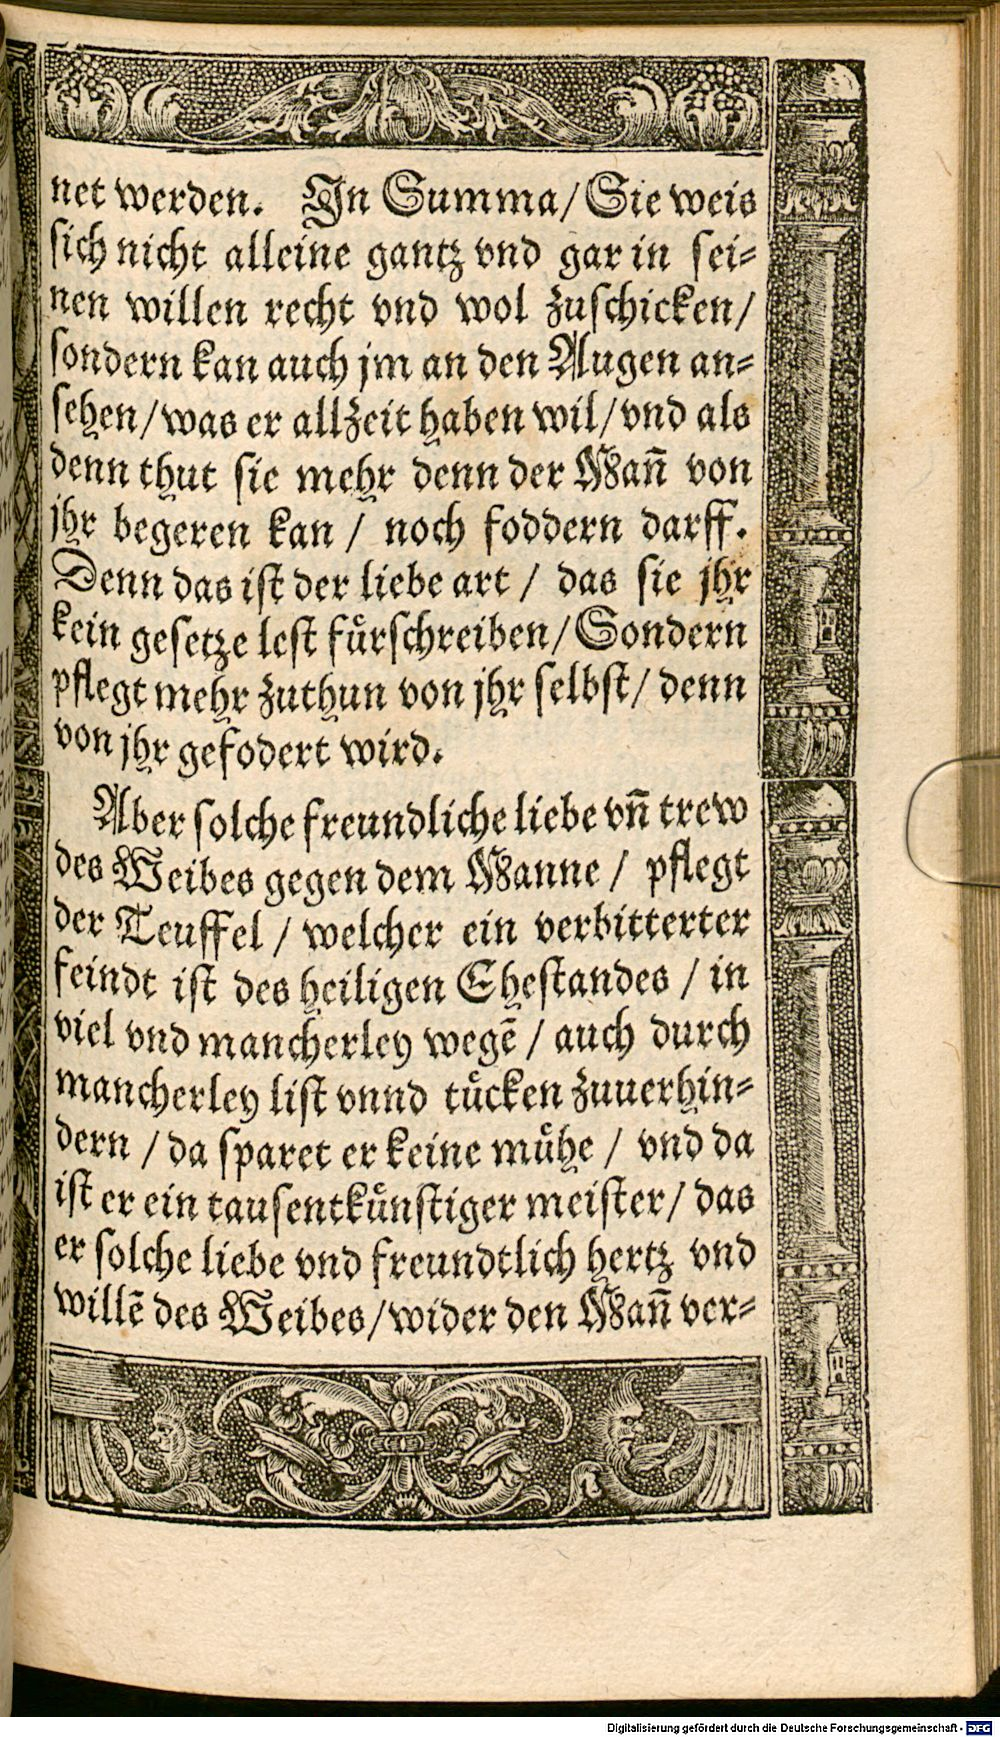 net werden. In Summa/ Sie weis
sich nicht alleine gantz vnd gar in sei-
nen willen recht vnd wol zuschicken/
sondern kan auch jm an den Augen an-
sehen/ was er allzeit haben wil/ vnd als
denn thut sie mehr denn der Mañ von
jhr begeren kan / noch foddern darff.
Denn das ist der liebe art / das sie jhr
kein gesetze lest fuͤrschreiben/ Sondern
pflegt mehr zuthun von jhr selbst/ denn
von jhr gefodert wird.
Aber solche freundliche liebe vñ trew
des Weibes gegen dem Manne / pflegt
der Teuffel / welcher ein verbitterter
feindt ist des heiligen Ehestandes / in
viel vnd mancherley wegẽ / auch durch
mancherley list vnnd tuͤcken zuuerhin-
dern / da sparet er keine muͤhe / vnd da
ist er ein tausentkuͤnstiger meister/ das
er solche liebe vnd freundtlich hertz vnd
willẽ des Weibes/ wider den Mañ ver-
Digitalisierung gefördert durch die Deutsche Forschungsgemeinschaft - DFG